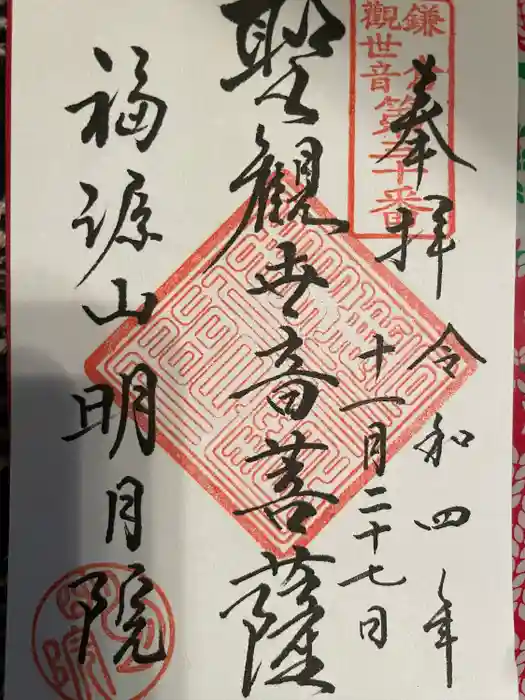 鎌倉
觀世音
第三十番
奉拝
令和四年
十一月二十七日
聖観世音菩薩
福源山明月院